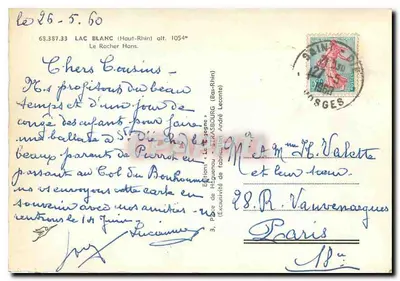 le 26-5-60
65.387.33 LAC BLANC (Haut-Rhin) alt. 1054m
Le Rocher Hans
Chers Cousins -
Ns profitons du beau
temps et d'un jour de
congé des enfants pour faire
une ballade à St Dié chez les
beaux parents de Pierrot en
passant au Col du Bonhomme
ns vs envoyons cette carte en
souvenir avec nos amitiés - ns
rentrons le 1er Juin
Lucienne
3, Place de STRASBOURG (Bas-Rhin)
(Exclusivité de André Leconte)
SAINT-DIÉ
1960
VOSGES
M. et Mme Th. Valette
et leur sœur
28. R. Vauvenargues
Paris
18e